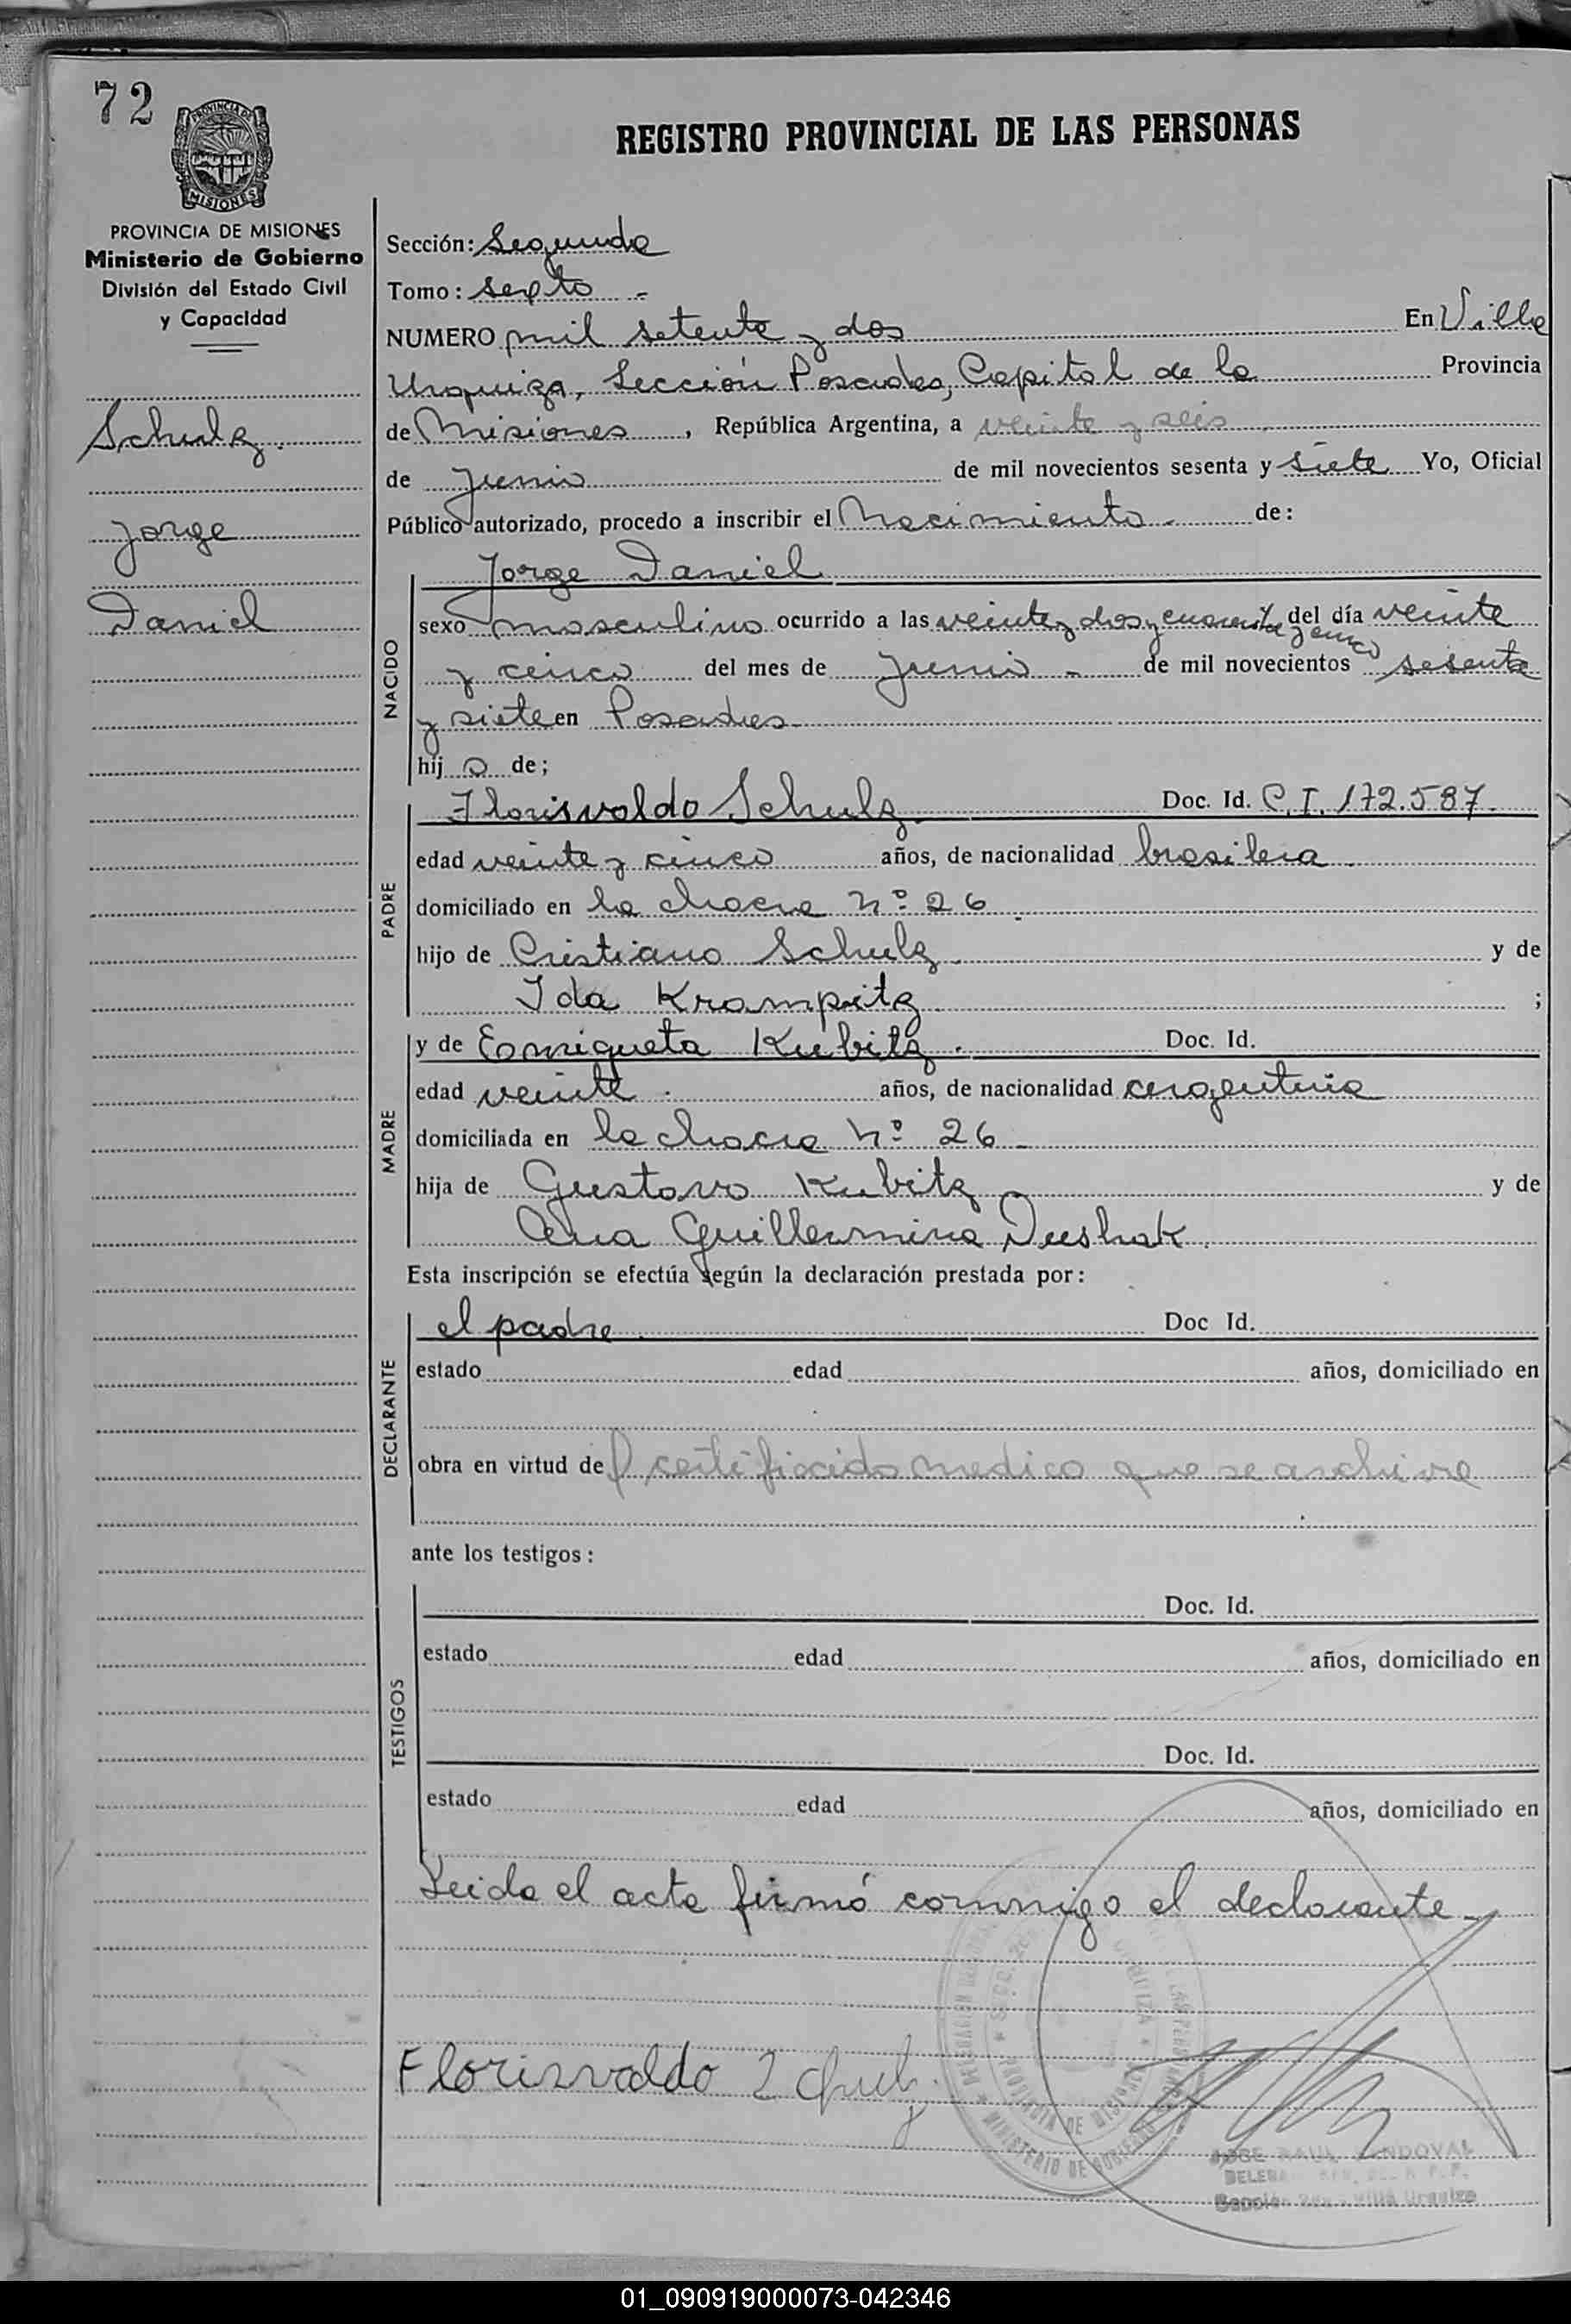 72
REGISTRO PROVINCIAL DE LAS PERSONAS
PROVINCIA DE
MISIONES
PROVINCIA DE MISIONES
Ministerio de Gobierno
División del Estado Civil
y Capacidad
Schulz.
Jorge
Daniel
Sección: Segunda
Tomo: sexto -
NUMERO mil setenta y dos En Villa
Urquiza, Sección Posadas, Capital de la Provincia
de Misiones, República Argentina, a veinte y seis
de Junio de mil novecientos sesenta y siete Yo, Oficial
Público autorizado, procedo a inscribir el Nacimiento - de:
NACIDO
Jorge Daniel
sexo masculino ocurrido a las veinte y dos y cuarenta y cinco del día veinte
y cinco del mes de Junio - de mil novecientos sesenta
y siete en Posadas
hij o de;
PADRE
Florisvaldo Schulz. Doc. Id. C.I. 172.587.
edad veinte y cinco años, de nacionalidad brasilera.
domiciliado en la chacra Nº 26.
hijo de Cristiano Schulz. y de
Ida Krampitz. ;
MADRE
y de Enriqueta Kubitz. Doc. Id.
edad veinte. años, de nacionalidad argentina
domiciliada en la chacra Nº 26 -
hija de Gustavo Kubitz y de
Ana Guillermina Dushak.
Esta inscripción se efectúa según la declaración prestada por:
DECLARANTE
el padre. Doc Id.
estado edad años, domiciliado en
obra en virtud de certificado medico que se archiva
ante los testigos:
TESTIGOS
Doc. Id.
estado edad años, domiciliado en
Doc. Id.
estado edad años, domiciliado en
Leida el acta firmó conmigo el declarante -
Florisvaldo Schulz.
PROVINCIA DE MISIONES
MINISTERIO DE GOBIERNO
JOSE RAUL SANDOVAL
Villa Urquiza
01_090919000073-042346